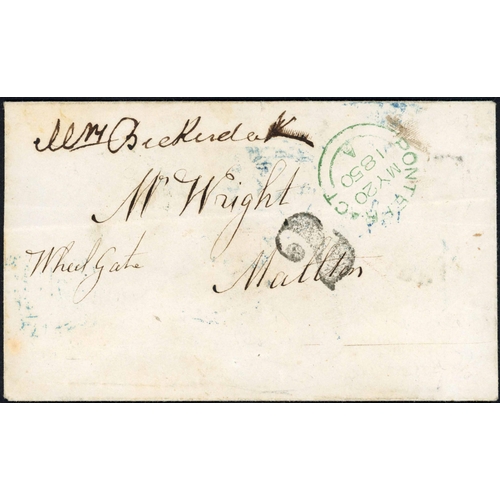 Mrs Bickerdek
PONTEFRACT
A
MY 20
1850
Mr Wright
Wheel Gate
Maltton
2